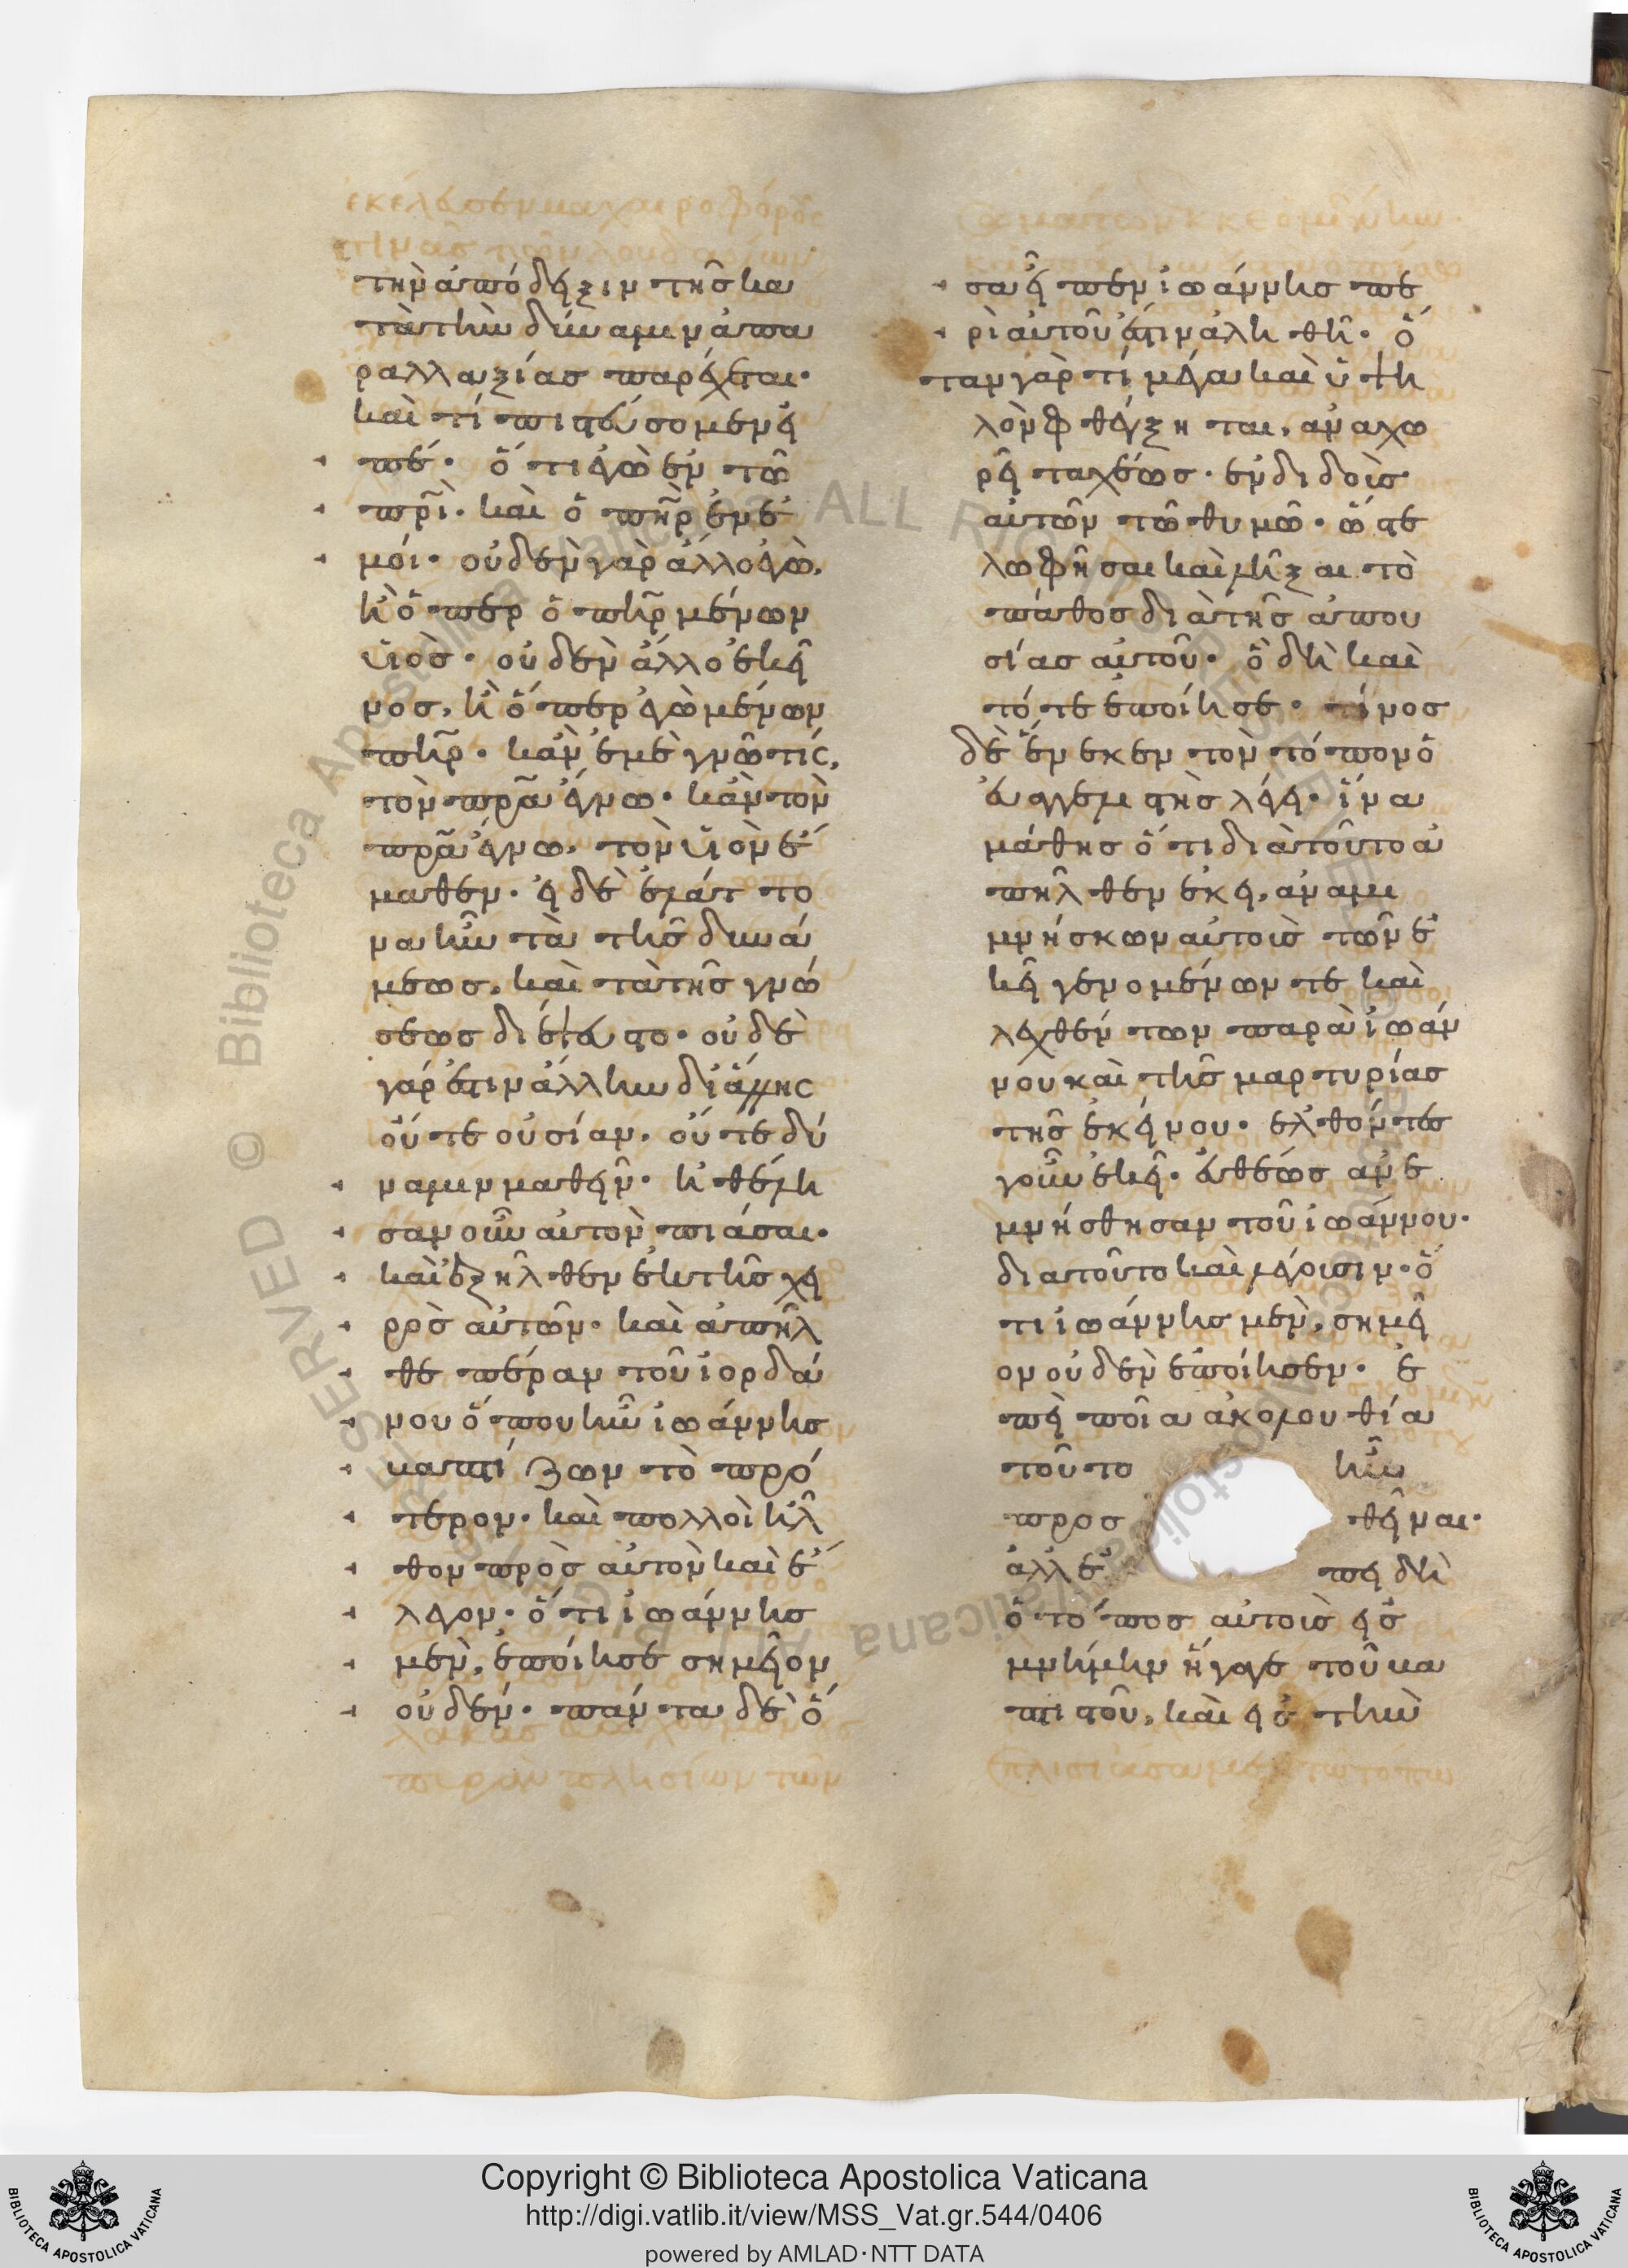 τὴν ἀπόδειξιν τῆς κα
τὰ τὴν δύναμιν ἀπα
ραλλαξίας παρέχεται·
καὶ τί πιστεύσομεν εἶ
πέ· ὅτι ἐγὼ ἐν τῶ
πρὶ· καὶ ὁ πὴρ ἐν ἐ
μοί· οὐδὲν γὰρ ἄλλο ἐγὼ,
ἢ ὅπερ ὁ πὴρ μένων
υἱὸς· οὐδὲν ἄλλο ἐκεῖ
νος, ἢ ὅπερ ἐγὼ μένων
πὴρ· κἂν ἐμὲ γνῶ τίς,
τὸν πρα ἔγνω· κἂν τὸν
πρα ἔγνω, τὸν υἱὸν ἔ
μαθεν· εἰ δὲ ἐλάττο
να ἦν τὰ τῆς δυνά
μεως, καὶ τὰ τῆς γνώ
σεως διέψευστο· οὐδὲ
γάρ ἐστιν ἄλλην δι' ἄλλης
οὔτε οὐσίαν, οὔτε δύ
ναμιν μαθεῖν· ἠθέλη
σαν οὖν αὐτὸν πιάσαι·
καὶ ἐξῆλθεν ἐκ τῆς χει
ρὸς αὐτῶν· καὶ ἀπῆλ
θε πέραν τοῦ ἰορδά
νου ὅπου ἦν ἰωάννης
βαπτίζων τὸ πρό
τερον· καὶ πολλοὶ ἦλ
θον πρὸς αὐτὸν καὶ ἔ
λεγον· ὅτι ἰωάννης
μὲν, ἐποίησε σημεῖον
οὐδέν· πάντα δὲ ὅ
σα εἶπεν ἰωάννης πε
ρὶ αὐτοῦ ἐστιν ἀληθῆ· ὅ
ταν γὰρ τί μέγα καὶ ὑψη
λὸν φθέγξηται, ἀναχω
ρεῖ ταχέως· ἐνδιδοὺς
αὐτῶν τῶ θυμῶ· ὥστε
λωφῆσαι καὶ λῆξαι τὸ
πάθος διὰ τῆς ἀπου
σίας αὐτοῦ· ὃ δὴ καὶ
τότε ἐποίησε· τίνος
δὲ ἕνεκεν τὸν τόπον ὁ
εὐαγγελιστὴς λέγει· ἵνα
μάθης ὅτι διὰ τοῦτο ἀ
πῆλθεν ἐκεῖ, ἀναμι
μνήσκων αὐτοὺς τῶν ἐ
κεῖ γενομένων τε καὶ
λεχθέντων παρὰ ἰωάν
νου καὶ τῆς μαρτυρίας
τῆς ἐκείνου· ἐλθόντες
γοῦν ἐκεῖ· εὐθέως ἀνε
μνήσθησαν τοῦ ἰωάννου·
διατοῦτο καὶ λέγουσιν· ὅ
τι ἰωάννης μὲν, σημεῖ
ον οὐδὲν ἐποίησεν· ἐ
πεὶ ποῖα ἀκολουθία
τοῦτο ἦν
προσ θεῖναι·
ἀλλ' ἐ πειδὴ
ὁ τόπος αὐτοὺς εἰς
μνήμην ἤγαγε τοῦ βα
πτιστοῦ, καὶ εἰς τὴν